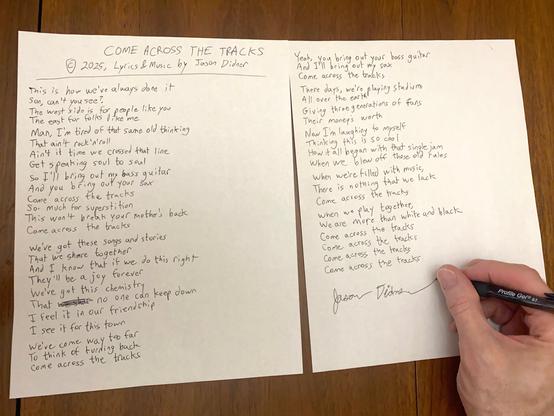 COME ACROSS THE TRACKS
© 2025, Lyrics & Music by Jason Didner
This is how we've always done it
Son, can't you see?
The west side is for people like you
The east for folks like me
Man, I'm tired of that same old thinking
That ain't rock 'n' roll
Ain't it time we crossed that line
Get speaking soul to soul
So I'll bring out my bass guitar
And you bring out your sax
Come across the tracks
So much for superstition
This won't break your mother's back
Come across the tracks
We've got these songs and stories
That we share together
And I know that if we do this right
They'll be a joy forever
We've got this chemistry
That no one can keep down
I feel it in our friendship
I see it for this town
We've come way too far
To think of turning back
Come across the tracks
Yeah, you bring out your bass guitar
And I'll bring out my sax
Come across the tracks
These days, we're playing stadiums
All over the earth
Giving three generations of fans
Their money's worth
Now I'm laughing to myself
Thinking this is so cool
How it all began with that single jam
When we blew off those old rules
When we're filled with music,
There is nothing that we lack
Come across the tracks
When we play together,
We are more than white and black
Come across the tracks
Come across the tracks
Come across the tracks
Come across the tracks
Jason Didner
Profile Gel 0.7